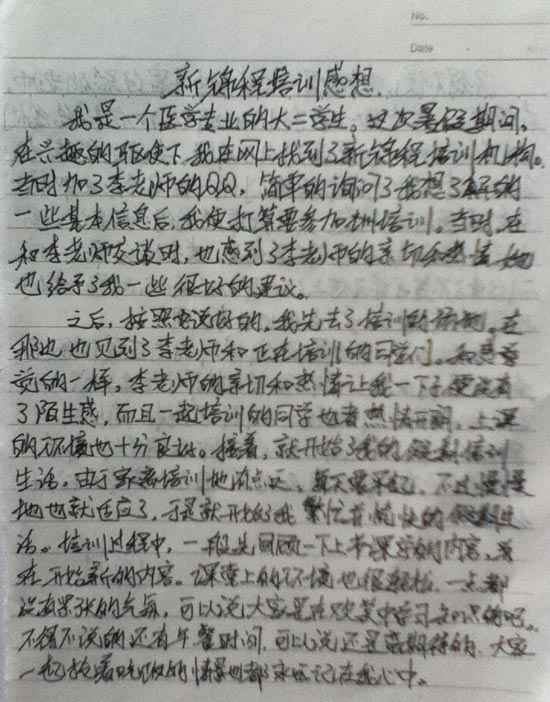 No.
Date
新锦程培训感想
我是一个医学专业的大二学生。这次暑假期间,
在兴趣的驱使下我在网上找到了新锦程培训机构。
当时加了李老师的QQ,简单的询问了我想了解的
一些基本信息后,我便打算要参加培训。当时,在
和李老师交谈时,也感到了李老师的亲切和热情,她
也给予了我一些很好的建议。
之后,按照说好的,我先去了培训的。在
那边也见到了李老师和正在培训的同学们。和感
觉的一样,李老师的亲切和热情让我一下子便没有
了陌生感,而且一起培训的同学也都热情开朗,上课
的环境也十分良好。接着,就开始了我的培训
生活,由于家离培训地有点远,每天要早起,不过慢慢
地也就适应了,于是就开始了我繁忙而愉快的生
活。培训过程中,一般先回顾一下上节课学的内容,
在开始新的内容。课堂上的环境也很轻松,一点都
没有紧张的气氛,可以说大家是在欢笑中学习知识的吧。
不得不说的还有午餐时间,可以说还是最期待的,大家
一起抢着吃饭的情景也都永远记在我心中。